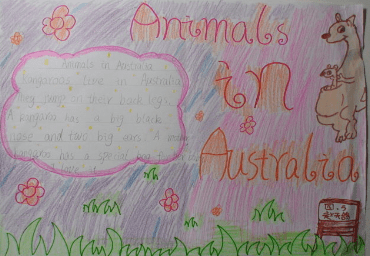 Animals
in
Australia
Animals in Australia
kangaroos live in Australia
They jump on their back legs.
A kangaroo has a big black
nose and two big ears. A mother
kangaroo has a special